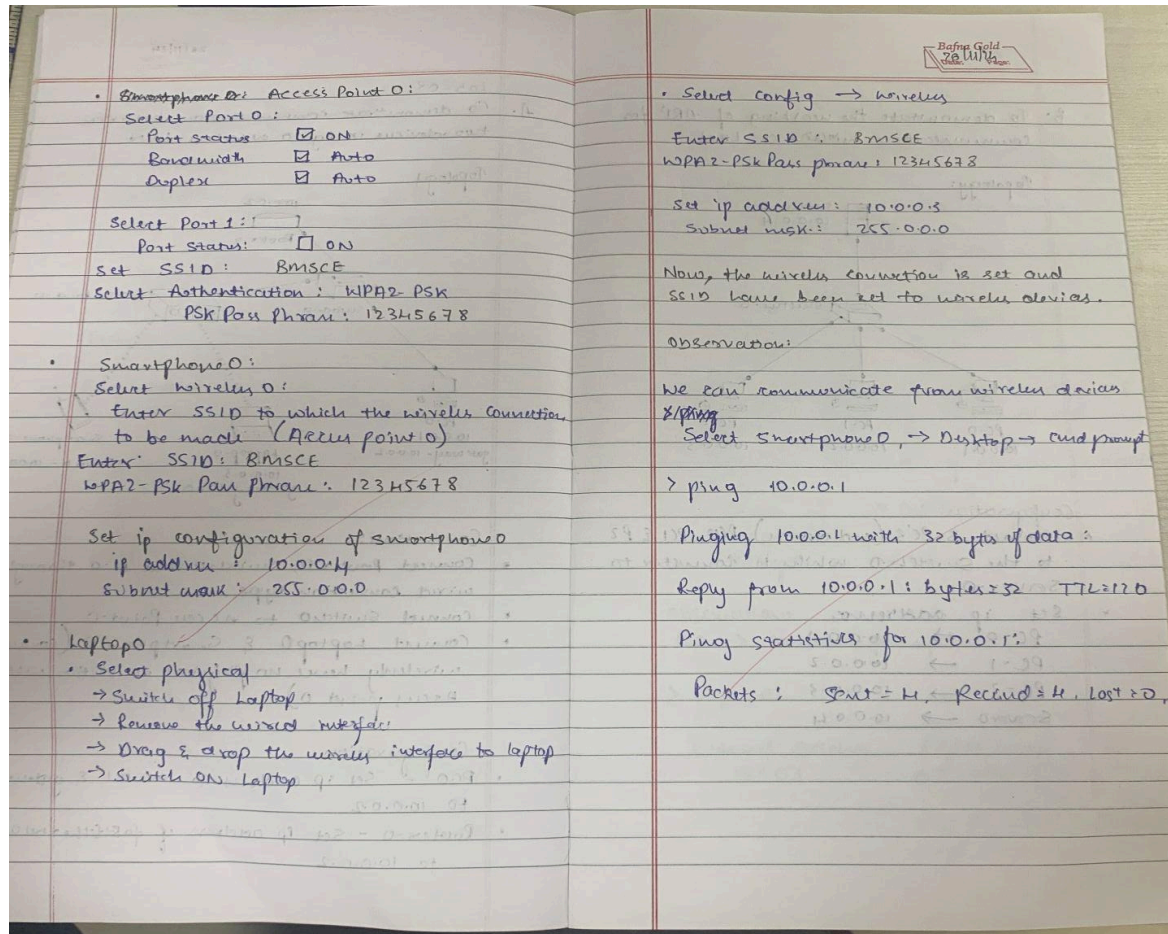 Access Point 0:
Select Port 0:
Port status ☑ ON
Bandwidth ☑ Auto
Duplex ☑ Auto
Select Port 1:
Port Status: ☐ ON
Set SSID: BMSCE
Select Authentication: WPA2-PSK
PSK Pass Phrase: 12345678
• Smartphone0:
Select wireless0:
Enter SSID to which the wireless connection
to be made (Access point 0)
Enter SSID: BMSCE
WPA2-PSK Pass Phrase: 12345678
Set ip configuration of smartphone0
ip address: 10.0.0.4
Subnet mask: 255.0.0.0
• Laptop0
• Select physical
→ Switch off Laptop
→ Remove the wired interface
→ Drag & drop the wireless interface to laptop
→ Switch ON Laptop
Bafna Gold
• Select config → wireless
Enter SSID: BMSCE
WPA2-PSK Pass phrase: 12345678
Set ip address: 10.0.0.3
Subnet msk: 255.0.0.0
Now, the wireless connection is set and
SSID have been set to wireless devices.
Observation:
We can communicate from wireless devices
Select Smartphone0, → Desktop → cmd prompt
> ping 10.0.0.1
Pinging 10.0.0.1 with 32 bytes of data:
Reply from 10.0.0.1: bytes=32 TTL=120
Ping statistics for 10.0.0.1:
Packets: Sent = 4, Recieved = 4, Lost = 0,